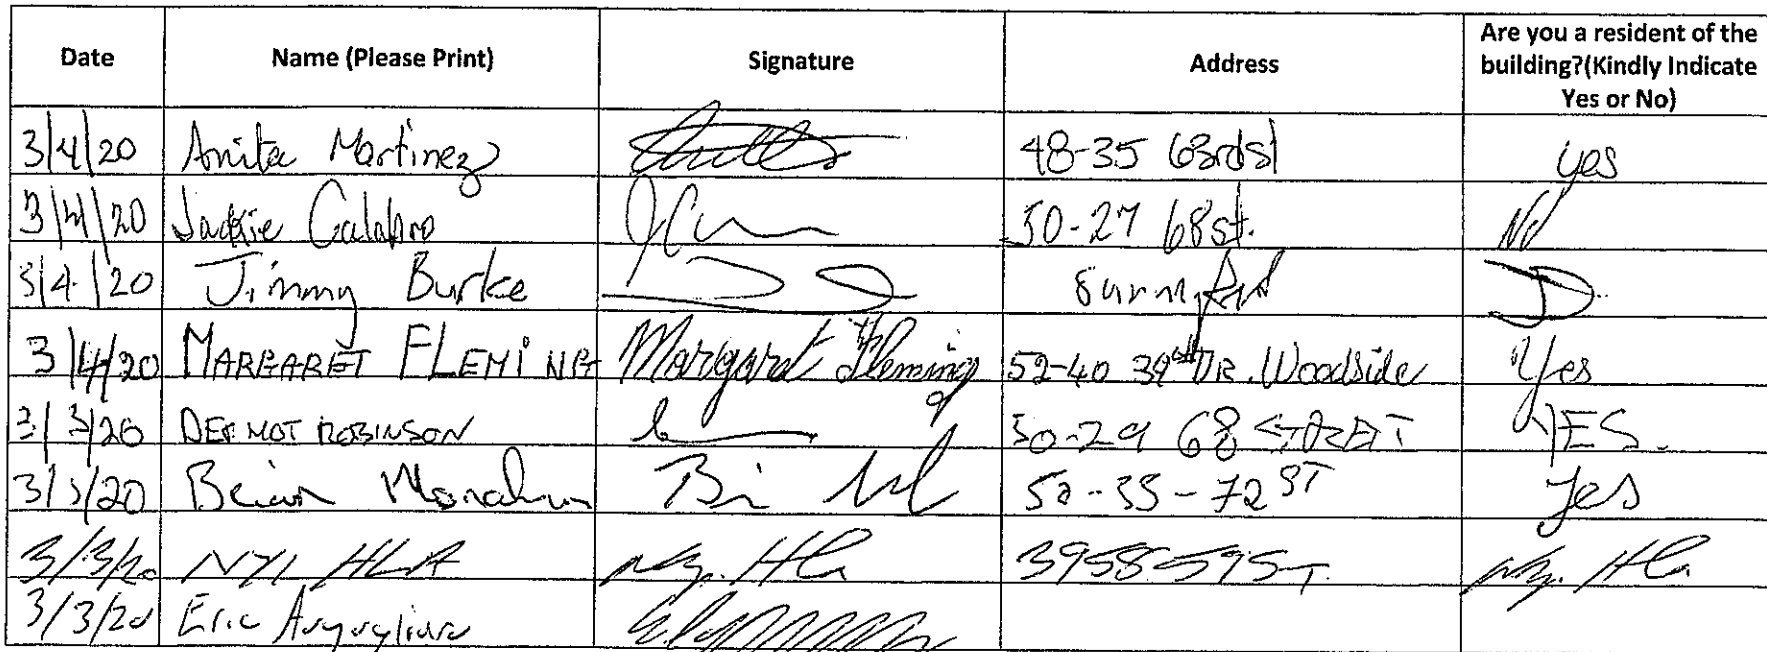 Date Name (Please Print) Signature Address Are you a resident of the building?(Kindly Indicate Yes or No)
3/4/20 Anita Martinez 48-35 63rd st yes
3/4/20 Jackie Calabro 50-27 68 st. No
3/4/20 Jimmy Burke
3/4/20 MARGARET FLEMING Margaret Fleming 52-40 39th DR. Woodside Yes
3/3/20 DERMOT ROBINSON 50-29 68 STREET YES.
3/3/20 Brian Monahan 52-35-72 ST Yes
3/3/20 NYI HLA Ny. Hla 3958 59 ST. Ny. Hla
3/3/20 Eric